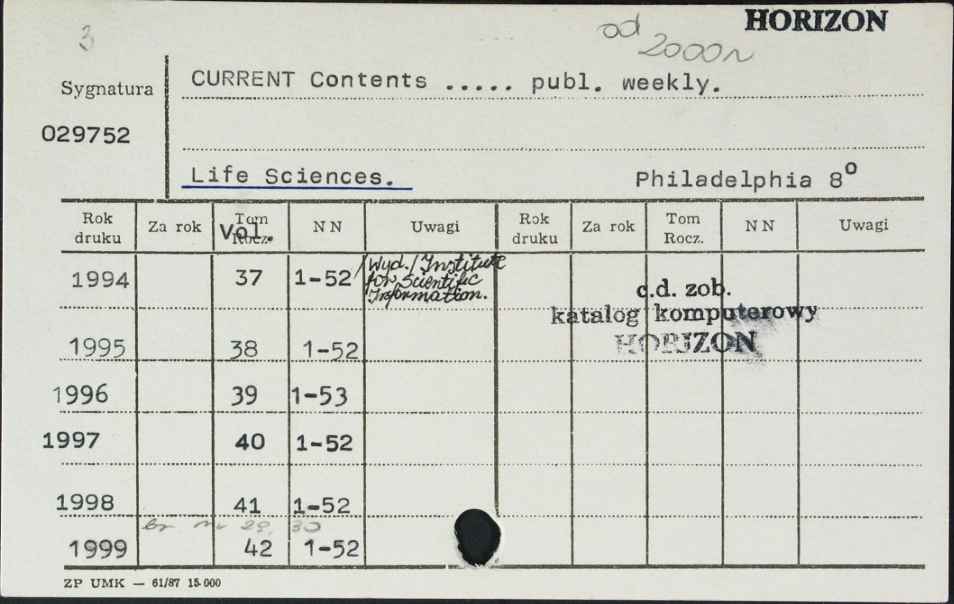 3
od
2000 r
HORIZON
Sygnatura
CURRENT Contents ..... publ. weekly.
029752
Life Sciences.
Philadelphia 8°
Rok druku Za rok Tom Rocz. Vol. NN Uwagi Rok druku Za rok Tom Rocz. NN Uwagi
1994 37 1-52 /Wyd./ Institute
for Scientific
Information.
c.d. zob.
katalog komputerowy
HORIZON
1995 38 1-52
1996 39 1-53
1997 40 1-52
1998 41 1-52
br nr 29, 30
1999 42 1-52
ZP UMK — 61/87 15.000